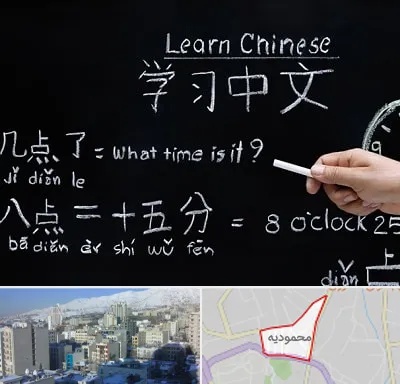 Learn Chinese
学习中文
9
几点了 = what time is it ?
jǐ diǎn le
八点二十五分 = 8 o'clock 25
bā diǎn èr shí wǔ fēn
上
diǎn
محمودیه